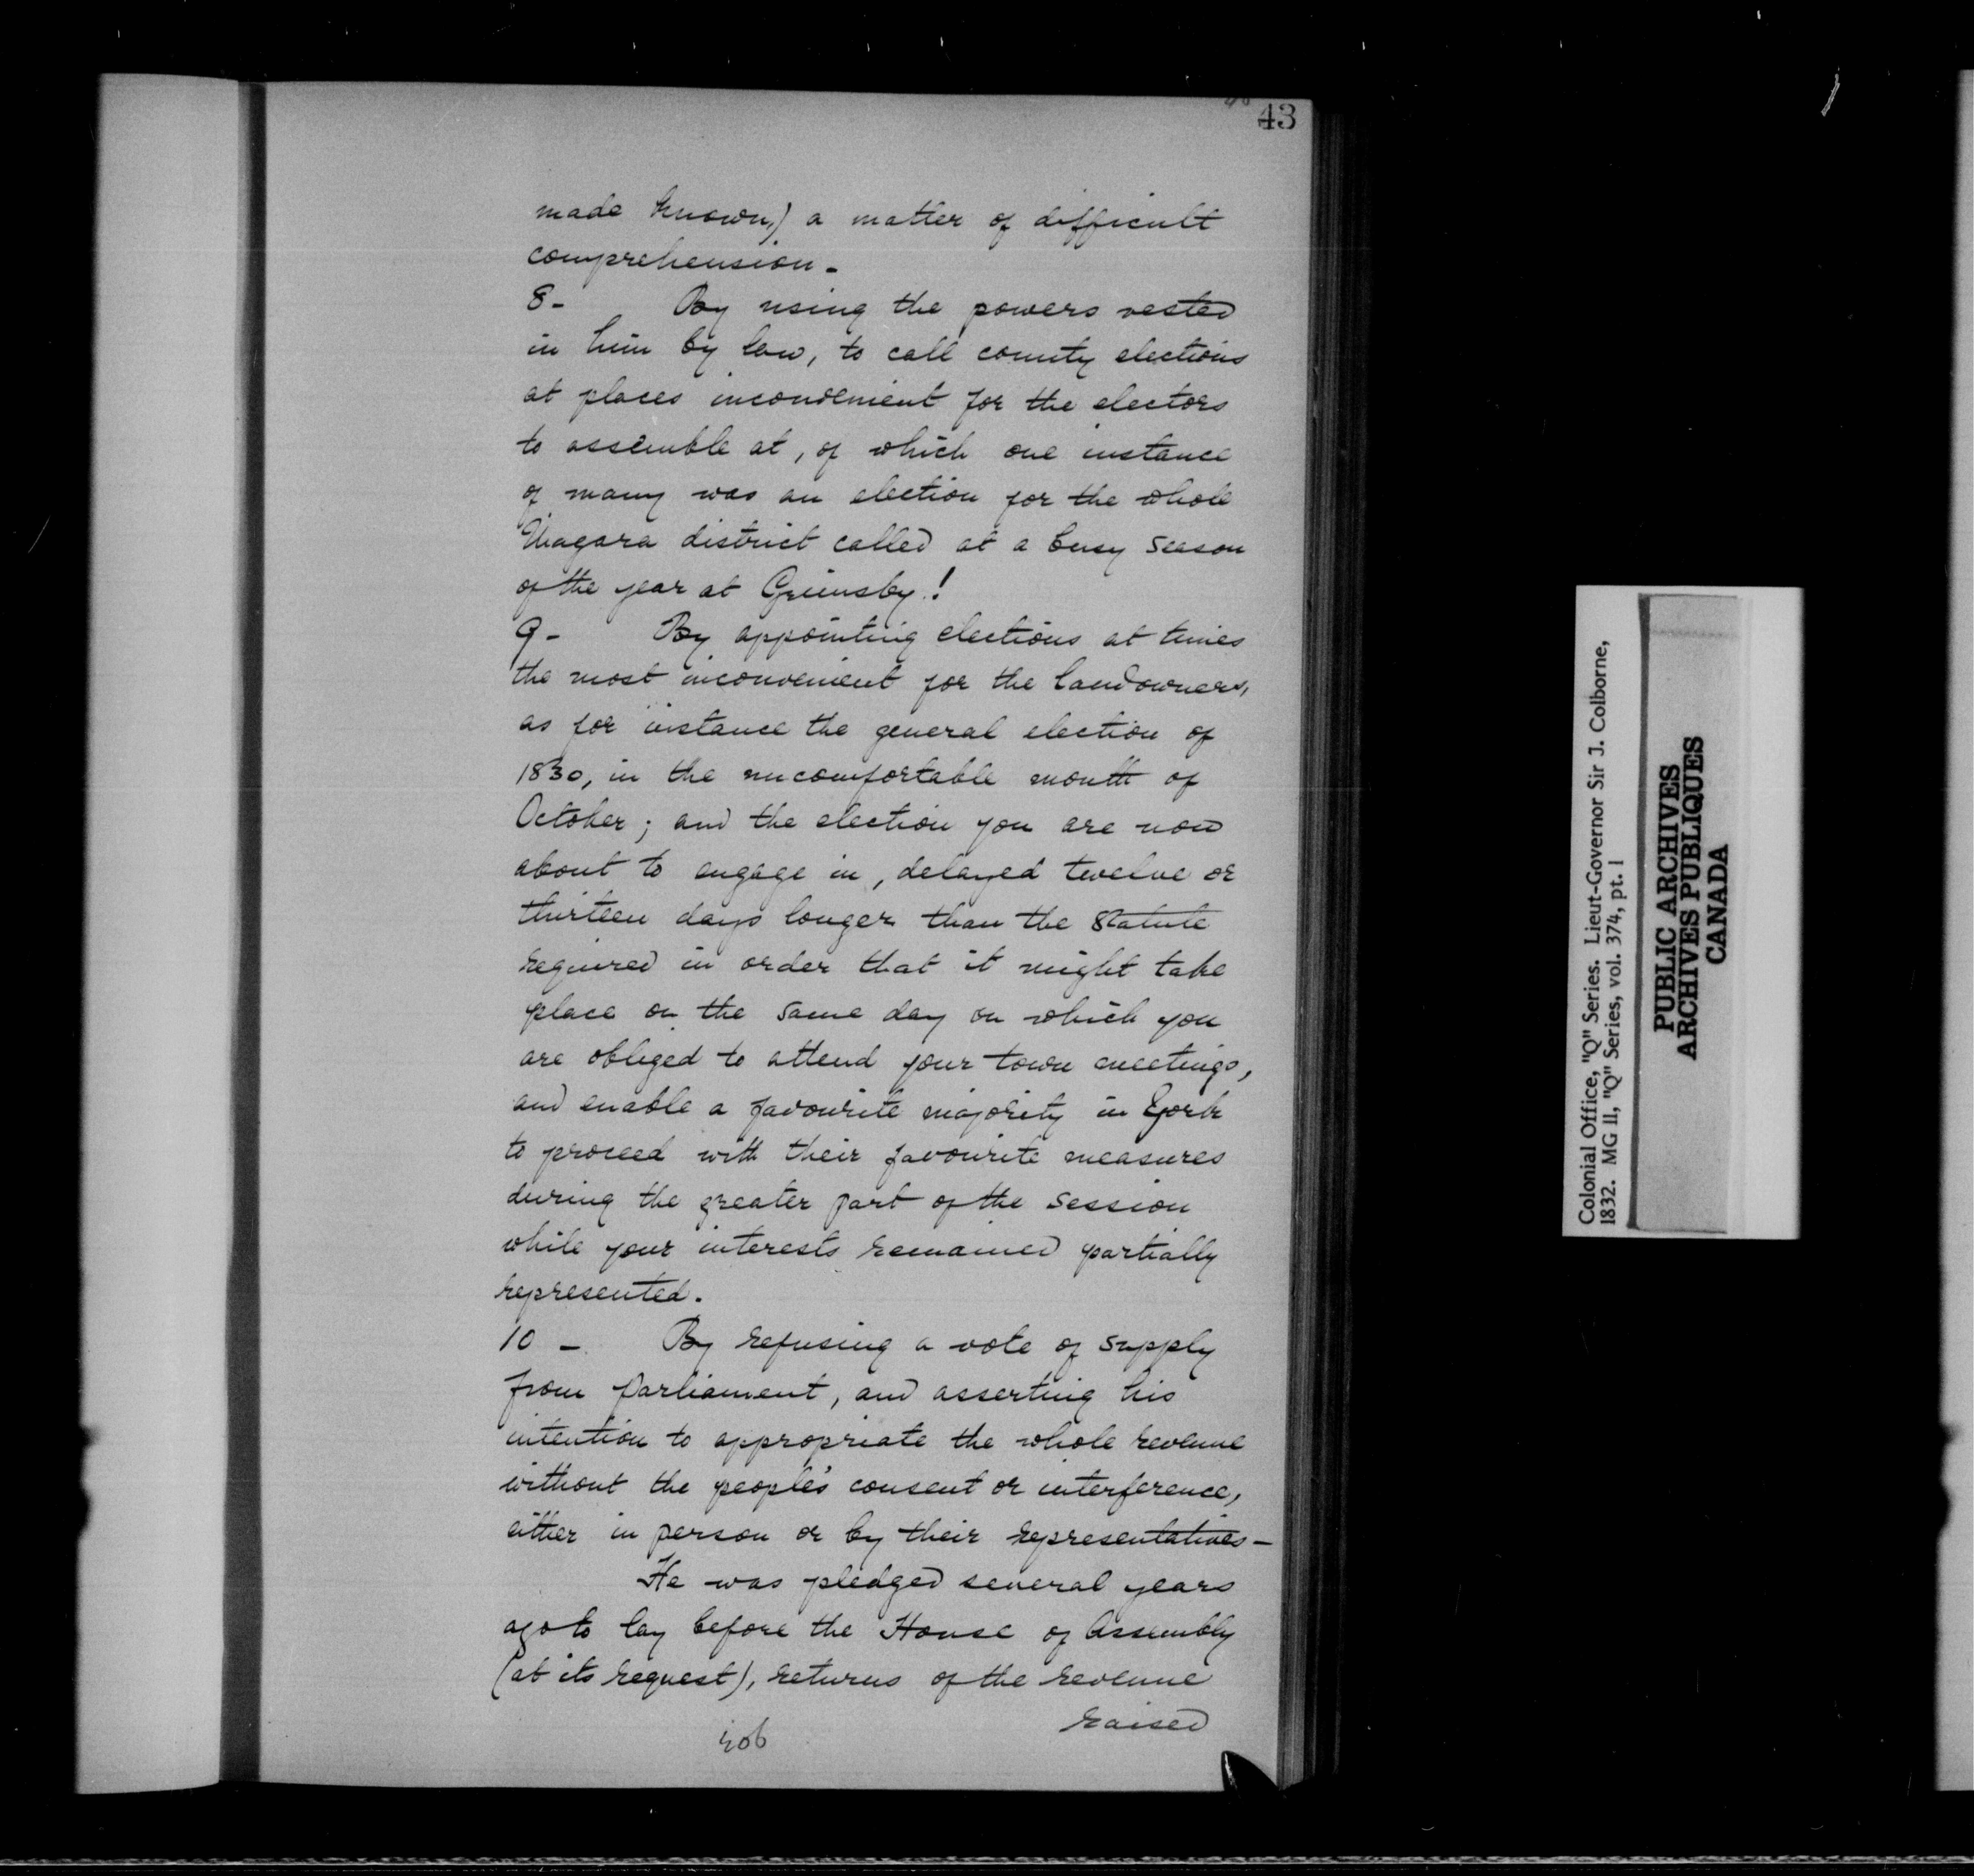 43
made known,) a matter of difficult
comprehension.
8- By using the powers vested
in him by law, to call county elections
at places inconvenient for the electors
to assemble at, of which one instance
of many was an election for the whole
Niagara district called at a busy season
of the year at Grimsby!
9- By appointing elections at times
the most inconvenient for the landowners,
as for instance the general election of
1830, in the uncomfortable month of
October; and the election you are now
about to engage in, delayed twelve or
thirteen days longer than the statute
required in order that it might take
place on the same day on which you
are obliged to attend your town meetings,
and enable a favourite majority in York
to proceed with their favourite measures
during the greater part of the session
while your interests remained partially
represented.
10 - By refusing a vote of supply
from parliament, and asserting his
intention to appropriate the whole revenue
without the people's consent or interference,
either in person or by their representatives-
He was pledged several years
ago to lay before the House of Assembly
(at its request), returns of the revenue
raised
Colonial Office, "Q" Series. Lieut-Governor Sir J. Colborne,
1832. MG 11, "Q" Series, vol. 374, pt. 1
PUBLIC ARCHIVES
ARCHIVES PUBLIQUES
CANADA